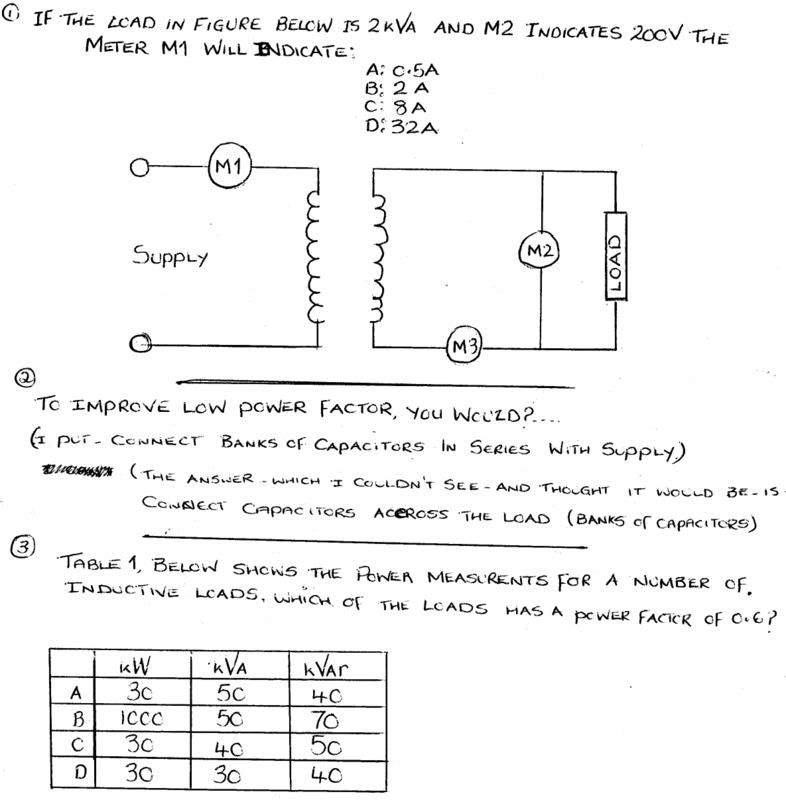 ① IF THE LOAD IN FIGURE BELOW IS 2kVA AND M2 INDICATES 200V THE
METER M1 WILL INDICATE:
A: 0.5A
B: 2 A
C: 8A
D: 32A
M1
SUPPLY
M2
LOAD
M3
②
TO IMPROVE LOW POWER FACTOR, YOU WOULD?....
(I PUT - CONNECT BANKS OF CAPACITORS IN SERIES WITH SUPPLY)
(THE ANSWER - WHICH I COULDN'T SEE - AND THOUGHT IT WOULD BE - IS
CONNECT CAPACITORS ACCROSS THE LOAD (BANKS OF CAPACITORS)
③
TABLE 1, BELOW SHOWS THE POWER MEASURENTS FOR A NUMBER OF
INDUCTIVE LOADS, WHICH OF THE LOADS HAS A POWER FACTOR OF 0.6?
kW kVA kVAr
A 30 50 40
B 1000 50 70
C 30 40 50
D 30 30 40